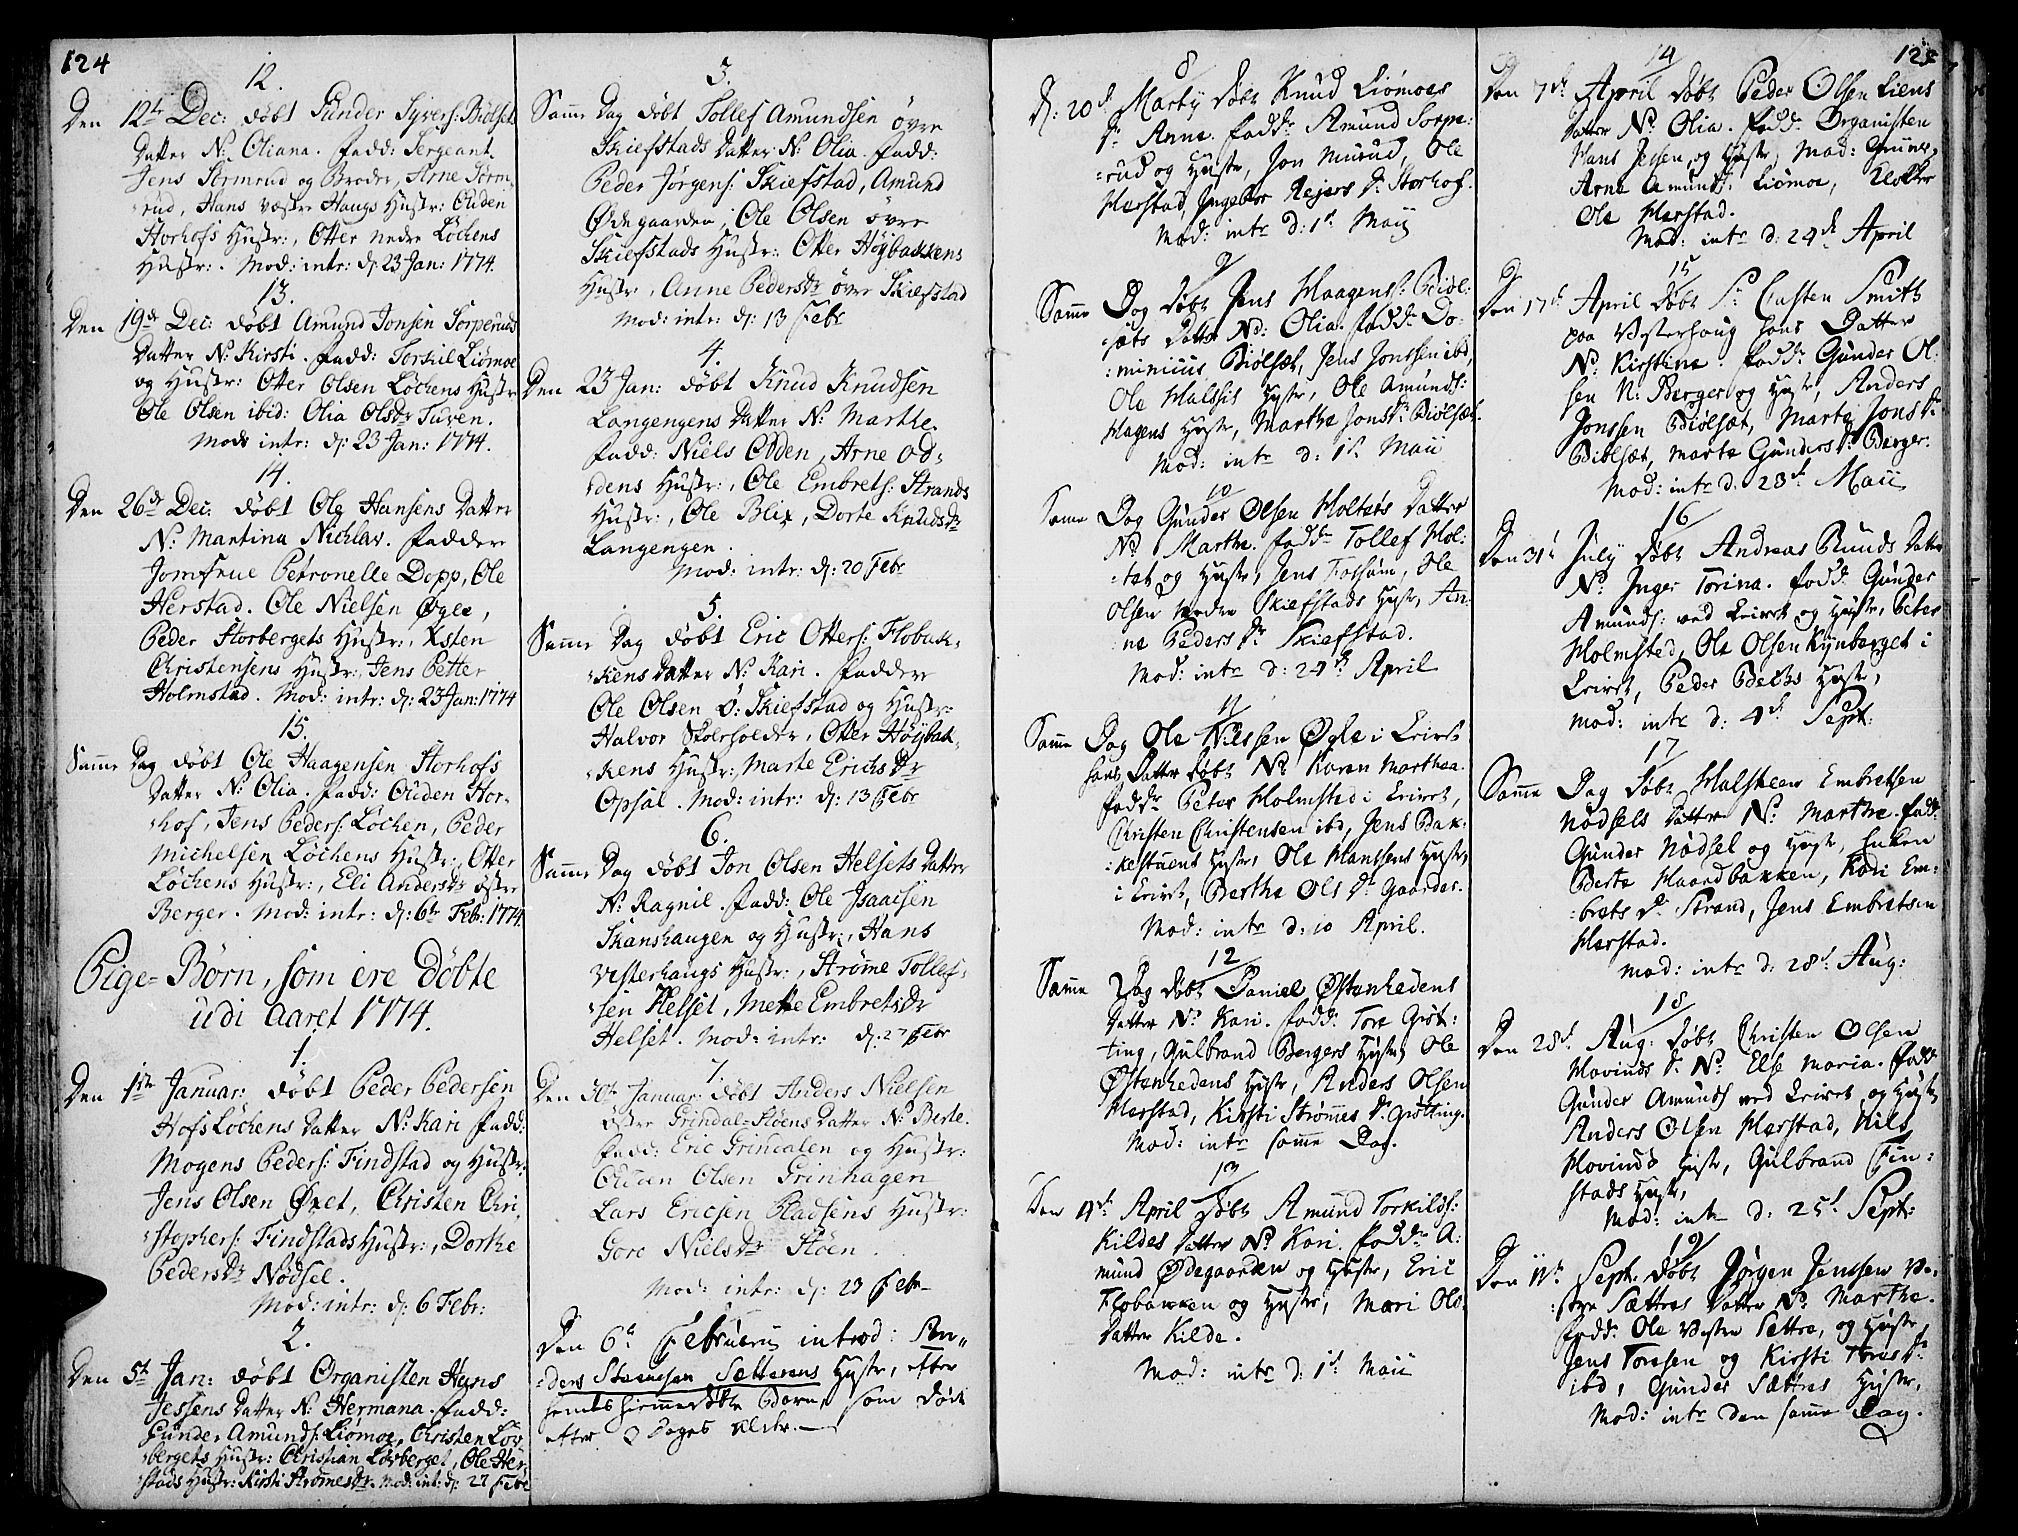 124
12.
Den 12te Dec: döbt Gunder Sÿvers: Biölset
Datter N: Oliana. fadd: Sergeant
Jens Stormrud og Broder, Arne Storm-
rud, Hans væstre Haugs Hustr: Ouden
Storhofs Hustr:, Otter nedre Löchens
Hustr:. Mod: intr: d: 23 Jan: 1774.
13.
Den 19de Dec: döbt Amund Jonsen Sorperuds
Datter N: Kirsti. fadd: Torkil Liömoe
og Hustr: Otter Olsen Löchens Hustr
Ole Olsen ibid: Olia Olsdr Turen.
Mod: intr: d: 23 Jan: 1774.
14.
Den 26de Dec: döbt Ole Hansens Datter
N: Martina Nichlar. fadder
Jomfrue Petronelle Dopp, Ole
Herstad. Ole Nielsen Øgle,
Peder Storbergets Hustr:, Ksten
Christensens Hustr: Jens Petter
Holmstad. Mod: intr: d: 23 Jan: 1774
15.
Samme Dag döbt Ole Haagensen Storhofs
Datter N: Olia. fadd: Ouden Stor-
hof, Jens Peders: Löchen, Peder
Michelsen Löchens Hustr:, Otter
Löchens Hustr:, Eli Andersdr öster
Berger. Mod: intr: d: 6te Feb: 1774.
Pige-Börn, som ere döbte
udi Aaret 1774.
1.
Den 1ste Januar: döbt Peder Pedersen
Hofs Löchens Datter N: Kari fadd:
Mogens Peders: Findstad og Hustr:
Jens Olsen Øxet, Christen Chri-
stophers: Findstads Hustr:, Dorthe
Pedersdr Nödsel.
Mod: intr: d: 6 Febr:
2.
Den 5te Jan: döbt Organisten Hans
Jessens Datter N: Hermana. fadd:
Gunder Amunds: Liömoe, Christen Löv-
bergets Hustr: Christian Lövberget, Ole Her-
stads Hustr: Kirsti Strömesdr. Mod: int: d: 27 Febr
3.
Samme Dag döbt Tollef Amundsen övre
Skiefstads Datter N: Olia. fadd:
Peder Jörgens: Skiefstad, Amund
Ødegaarden, Ole Olsen övre
Skiefstads Hustr: Otter Höÿbakkens
Hustr:, Anne Pedersdr övre Skiefstad
Mod: intr: d: 13 Febr
4.
Den 23 Jan: döbt Knud Knudsen
Langengens Datter N: Marthe.
fadd: Niels Odden, Arne Od-
dens Hustr:, Ole Embrets: Strands
Hustr:, Ole Blix, Dorte Knudsdr
Langengen.
Mod: intr: d: 20 Febr
5.
Samme Dag döbt Eric Otters: Flobak-
kens Datter N: Kari. fadder
Ole Olsen Ö: Skiefstad og Hustr:
Halvor Skoeholder, Otter Höÿbak-
kens Hustr: Marte Erichsdr
Opsal. Mod: intr: d: 13 Febr
6.
Samme Dag döbt Jon Olsen Helsets Datter
N: Ragnil. fadd: Ole Isaacsen
Skanshaugen og Hustr:, Hans
Vesterhaugs Hustr:, Ströme Tollef-
sen Helset, Mette Embretsdr
Helset. Mod: intr: d: 27 Febr
7.
Den 30te Januar: döbt Anders Nielsen
östre Grindal-Stöens Datter N: Berte.
fadd: Eric Grindalen og Hustr:
Ouden Olsen Grinhagen
Lars Ericsen Pladsens Hustr:
Gore Nielsdr Stöen.
Mod: intr: d: 23 Febr
Den 6te Februarii introd: An-
ders Steensen Setterens Hustr, efter
hendes hiemmedöbte Barn, som döde
efter 2 Dages Alder.
8
d: 20de Martÿ döbt Knud Liömoes
Dr Anne. fadd: Amund Sorpe-
rud og Hustr, Jon Murud, Ole
Herstad, Ingebor Reiers Dr Storhof.
Mod: intr d: 1st Maÿ
9
Samme Dag döbt Jens Haagens: Biöl-
sets Datter N: Olia. fadd: Do-
minicus Biölset, Jens Jonssen ibd,
Ole Halssis Hustr, Ole Amunds:
Hagens Hustr, Marthe Jonsdr Biölset
Mod: intr d: 1st Maii
10
Samme Dag Gunder Olsen Holtets Datter
N: Marthe. fadd: Tollef Hol-
tet og Hustr, Jens Fossum, Ole
Olsen nedre Skiefstads Hustr, An-
ne Peders Dr Skiefstad.
Mod: intr d: 24de April
11
Samme Dag Ole Nilssen Øgle i Leiret
hans Datter döbt N: Karen Marthea.
fadd: Peter Holmsted i Leiret,
Christen Christensen ibd, Jens Bak-
kestuens Hustr, Ole Mansens Hustr,
i Leiret, Berthe Ols Dr Gaarder.
Mod: intr d: 10 April.
12
Samme Dag döbt Daniel Østenhedens
Datter N: Kari. fadd: Tore Gröt-
ting, Gulbrand Bergers Hustr, Ole
Østenhedens Hustr, Anders Olsen
Herstad, Kirsti Strömes Dr Grötting.
Mod: intr samme Dag.
13
Den 4de April döbt Amund Torkilds:
Kildes Datter N: Kari. fadd: A-
mund Ødegaarden og Hustr, Eric
Flobakken og Hustr, Mari Ols
Datter Kilde.
Mod: intr d: 1st Maii
125
14
Den 7de April döbt Peder Olsen Liens
Datter N: Olia. fadd: Organisten
Hans Jessen, og Hustr, Mad: Gruner,
Arne Amunds: Liömoe, Klokker
Ole Herstad.
Mod: intr d: 24de April
15
Den 17de April döbt Sr Carsten Smith
paa Vesterhaug hans Datter
N: Kirstine. fadd: Gunder Ol-
sen N: Berger og Hustr, Anders
Jonssen Biölset, Marte Jons Dr
Biölset, Marte Gunders Dr Berger.
Mod: intr d: 23de Maii
16
Den 31te Julÿ döbt Andreas Runds Datter
N: Inger Torina. fadd: Gunder
Amunds: ved Leiret og Hustr, Peter
Holmsted, Ole Olsen Kynberget i
Leiret, Peder Becks Hustr,
Mod: intr d: 4de Sept:
17
Samme Dag döbt Halsteen Embretsen
Nödsels Datter N: Marthe. fadd:
Gunder Nödsel og Hustr, Enken
Berte Haardbakken, Kari Em-
brets Dr Strand, Jens Embretsen
Herstad.
Mod: intr d: 28de Aug:
18
Den 28de Aug: döbt Christen Olsen
Hovinds Dr N: Else Maria. fadd:
Gunder Amunds: ved Leiret og Hustr
Anders Olsen Herstad, Nils
Hovinds Hustr, Gulbrand Fin-
stads Hustr,
Mod: intr d: 25de Sept:
19
Den 11te Sept: döbt Jörgen Jenssen Ve-
stre Sættres Datter N: Marthe.
fadd: Ole Vestre Settre, og Hustr,
Jens Toresen og Kirsti Tores Dr
ibd, Gunder Sættres Hustr,
Mod: intr den samme Dag.